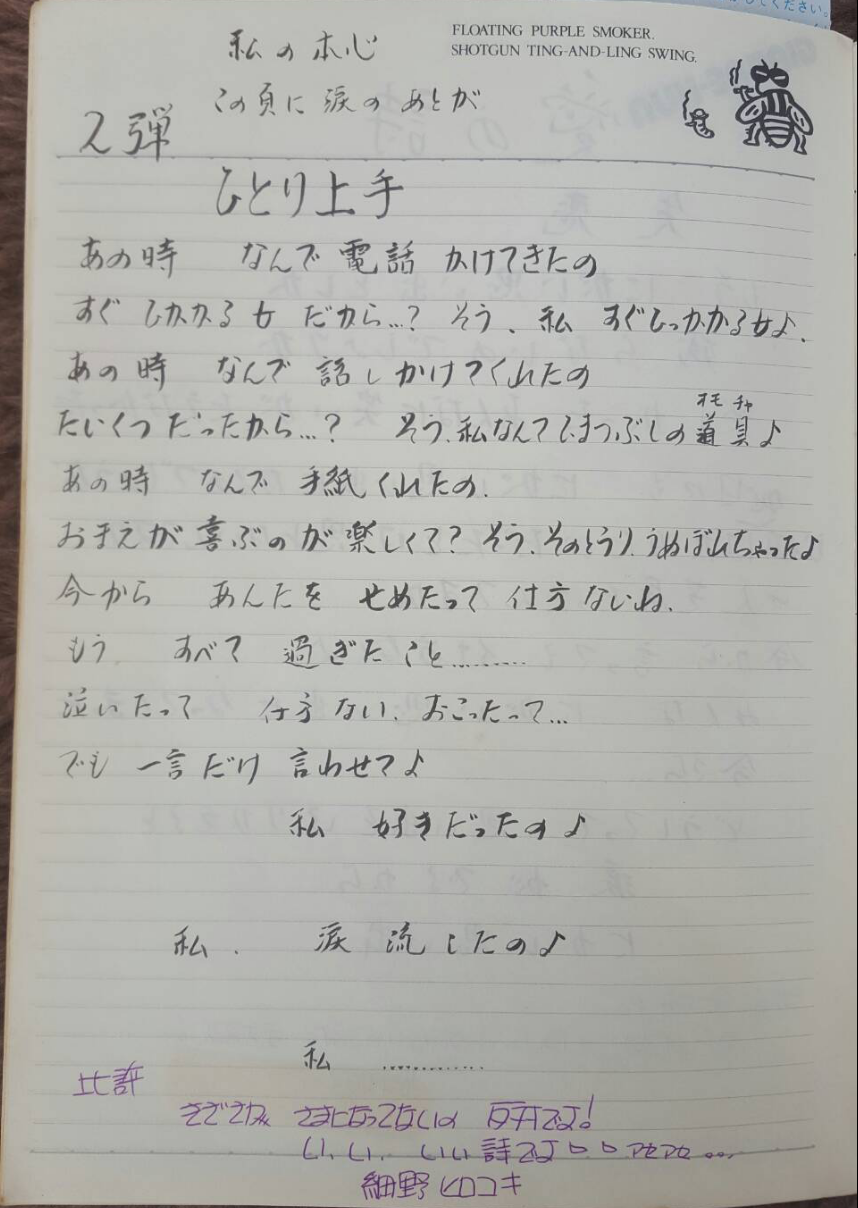 してください。
私の本心
FLOATING PURPLE SMOKER.
SHOTGUN TING-AND-LING SWING.
この頁に 涙の あとが
2弾
ひとり上手
あの時 なんで 電話 かけてきたの
すぐ ひかかる 女 だから…? そう、私 すぐひっかかる女よ、
あの時 なんで 話しかけてくれたの
オモチャ
たいくつ だったから…? そう、私なんてひまつぶしの道具よ
あの時 なんで 手紙くれたの、
おまえが喜ぶのが楽しくて? そう、そのとうり、うぬぼれちゃったよ
今から あんたを せめたって 仕方ないね、
もう、 すべて 過ぎたこと………
泣いたって 仕方ない、おこったって…
でも 一言だけ 言わせてよ
私 好きだったのよ
私、 涙 流したのよ
私 …………
い、い、 いい詩でよ アセアセ…
細野ヒロユキ